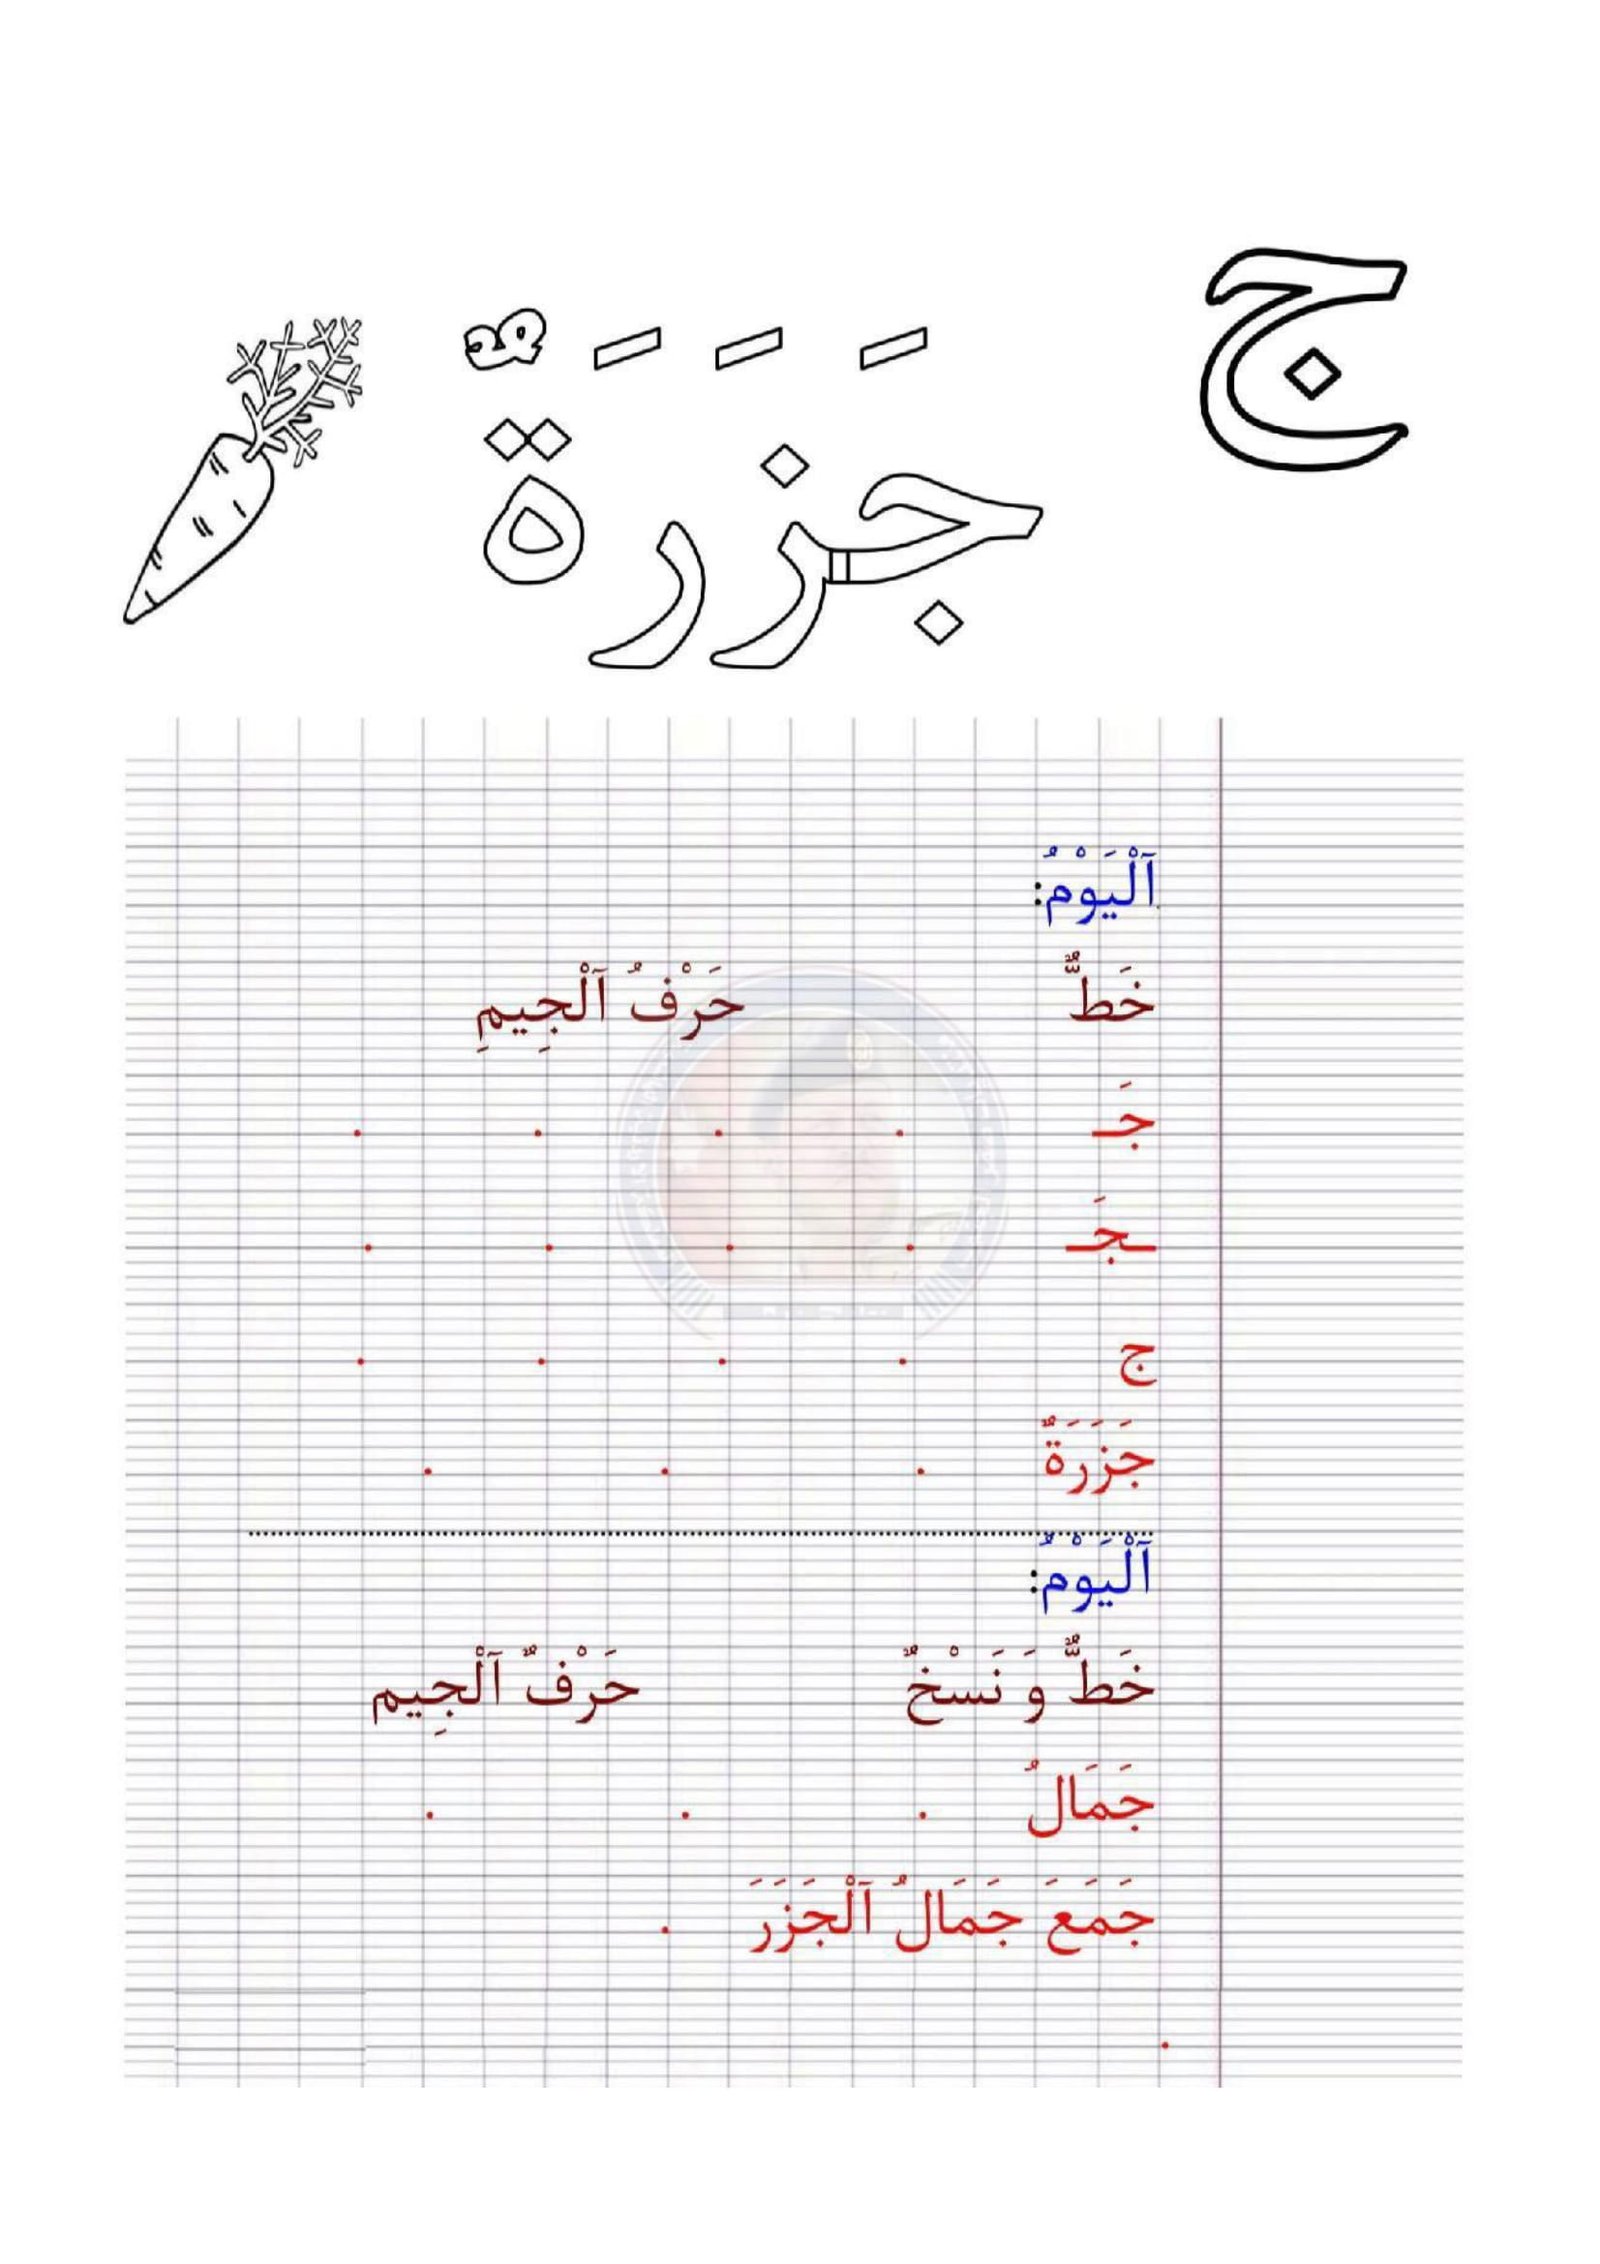 ج
جَزَرَةٌ
اَلْيَوْمُ:
خَطٌّ حَرْفُ اَلْجِيمِ
جَـ . . . .
ـجَـ . . . .
ج . . . .
جَزَرَةٌ . . .
اَلْيَوْمُ:
خَطٌّ وَ نَسْخٌ حَرْفٌ اَلْجِيم
جَمَالُ . . .
جَمَعَ جَمَالُ اَلْجَزَرَ .
.